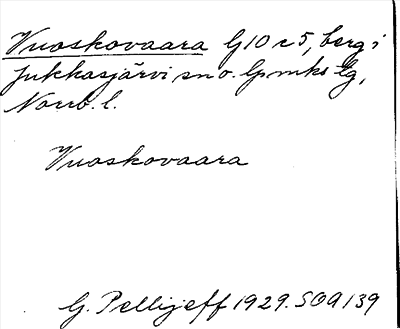 Vuoskovaara G10 c 5, berg i
Jukkasjärvi sn o. Lpmks lg,
Norrb. l.
Vuoskovaara
G. Pellijeff 1929. SOA 139